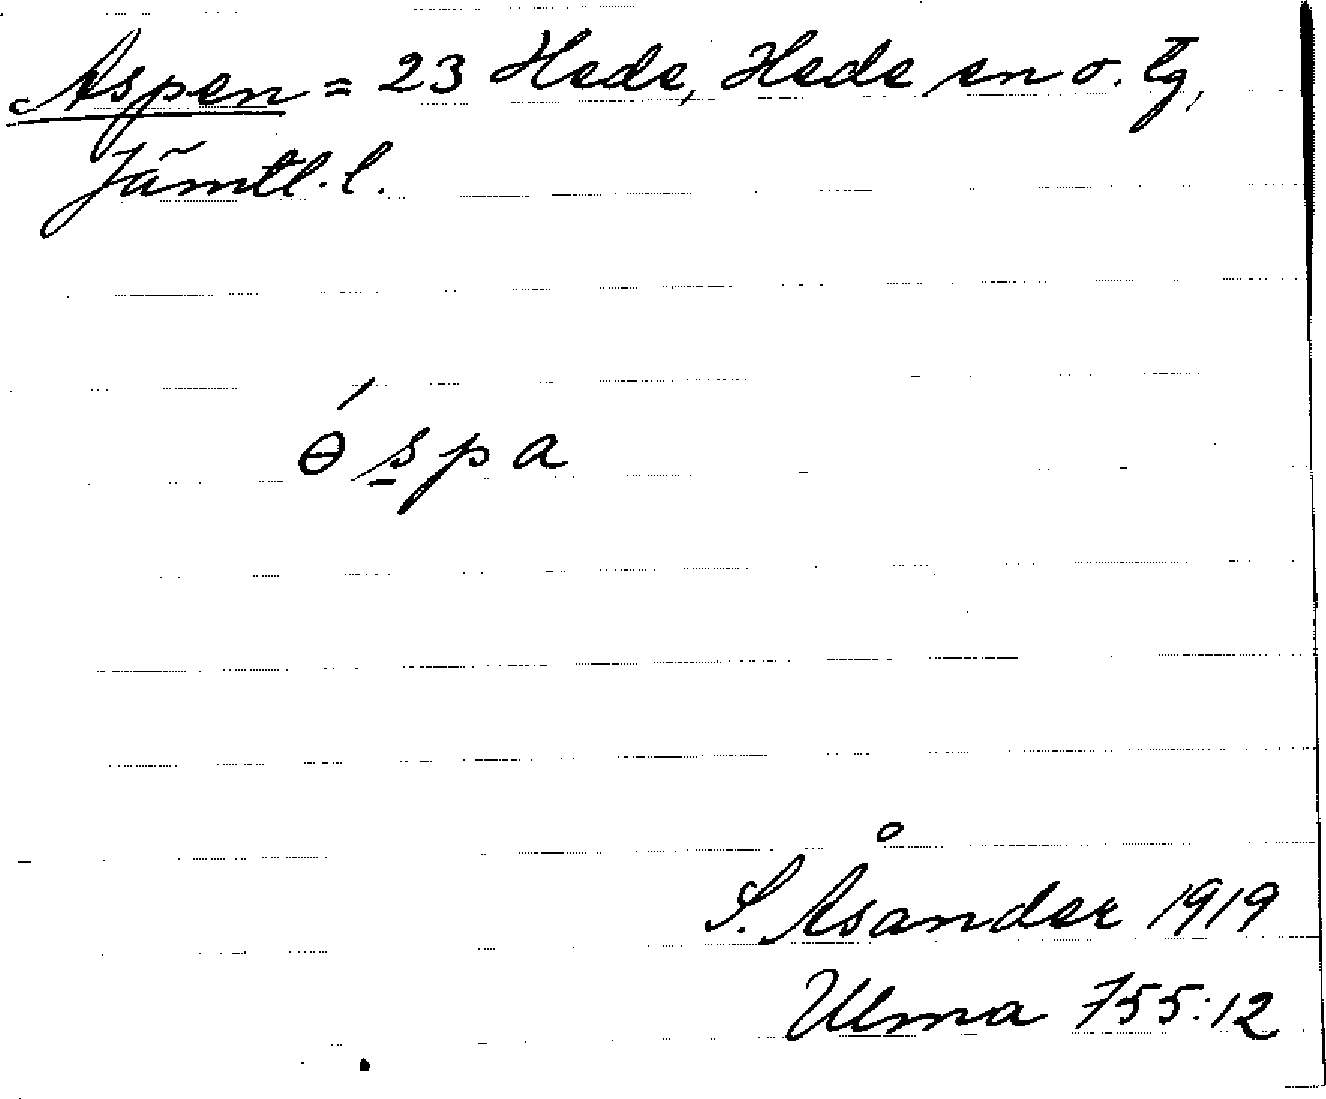 Aspen = 23 Hede, Hede sn o. tg,
Jämtl. l.
ɵ́s̱pa
S. Åsander 1919
Ulma 755:12